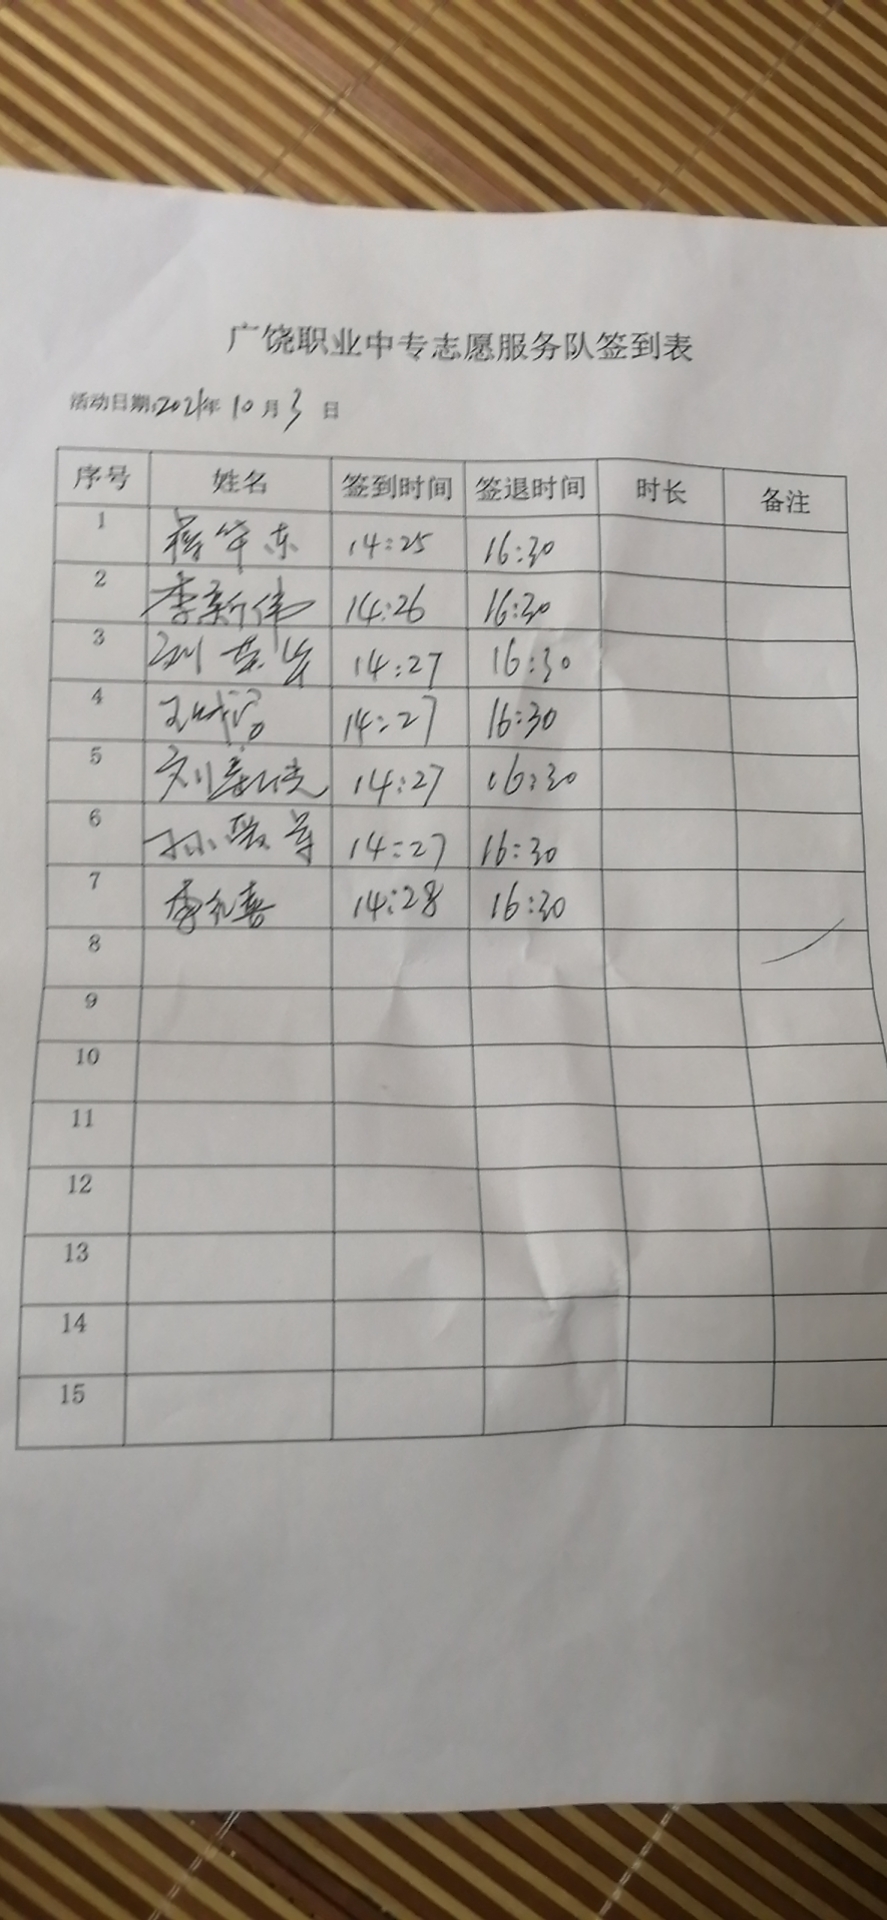 广饶职业中专志愿服务队签到表
活动日期:2021年10月3日
序号 姓名 签到时间 签退时间 时长 备注
1 14:25 16:30
2 李新伟 14:26 16:30
3 14:27 16:30
4 14:27 16:30
5 14:27 16:30
6 14:27 16:30
7 14:28 16:30
8
9
10
11
12
13
14
15